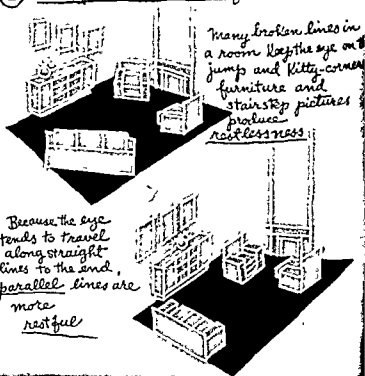 many broken lines in
a room keep the eye on
jump and Kitty-corner
furniture and
stairstep pictures
produce
restlessness
Because the eye
tends to travel
along straight
lines to the end,
parallel lines are
more
restful